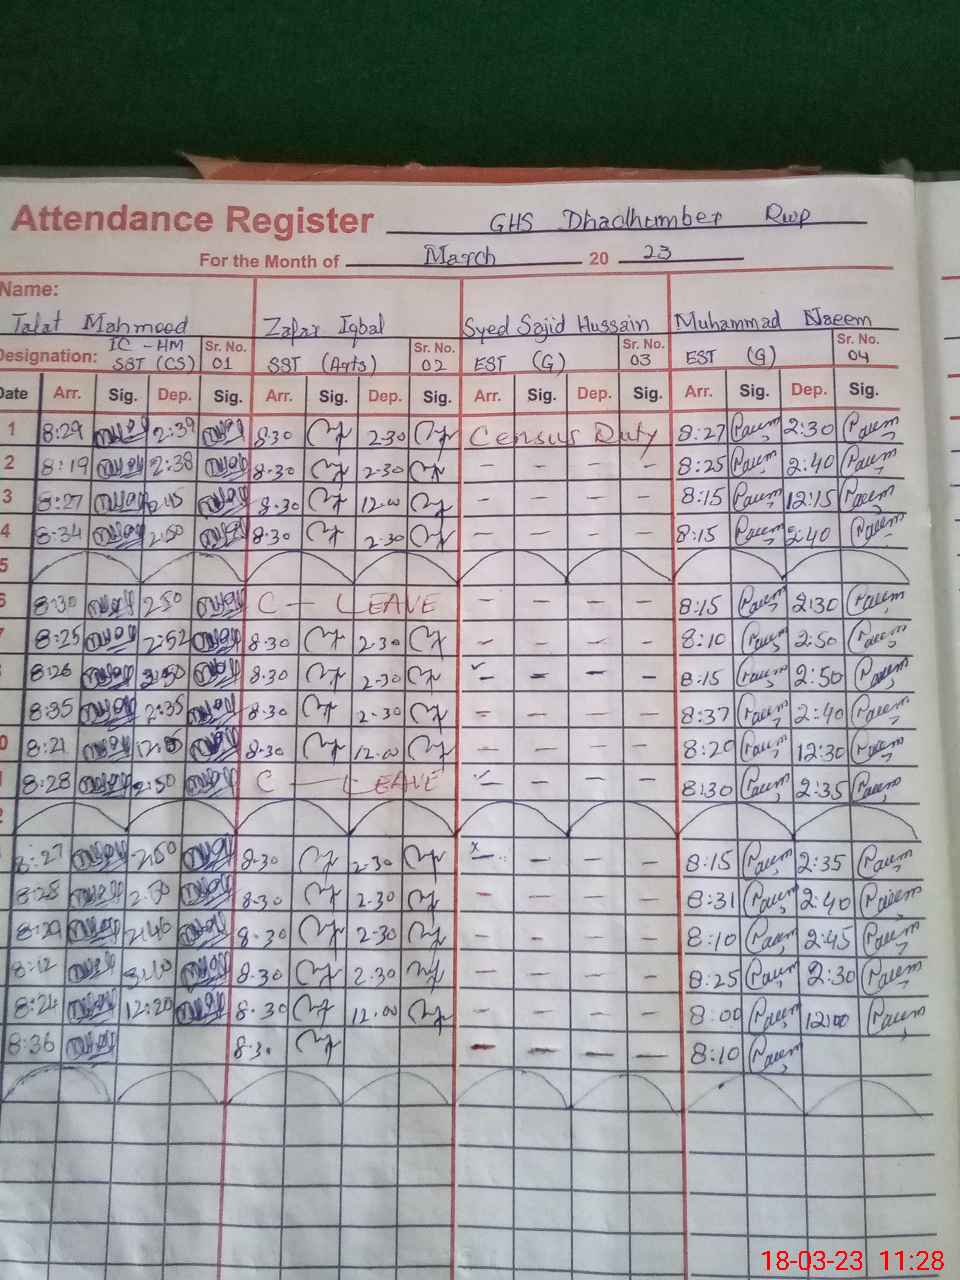 Attendance Register GHS Dhadhumber Rwp
For the Month of March 20 23
Name:
Talat Mahmood Zafar Iqbal Syed Sajid Hussain Muhammad Naeem
Designation: IC - HM SST (CS) Sr. No. 01 SST (Arts) Sr. No. 02 EST (G) Sr. No. 03 EST (G) Sr. No. 04
Date Arr. Sig. Dep. Sig. Arr. Sig. Dep. Sig. Arr. Sig. Dep. Sig. Arr. Sig. Dep. Sig.
1 8:29 2:39 8.30 2.30 Census Duty 8:27 Naeem 2:30 Naeem
2 8:19 2:38 8.30 2.30 - - - - 8:25 Naeem 2:40 Naeem
3 8:27 2:45 8.30 12.00 - - - - 8:15 Naeem 12:15 Naeem
4 8:34 2:50 8.30 2.30 - - - - 8:15 Naeem 2:40 Naeem
5
6 8:30 2:50 C - LEAVE - - - - 8:15 Naeem 2:30 Naeem
7 8:25 2:52 8.30 2.30 - - - - 8:10 Naeem 2:50 Naeem
8:26 8.30 2.30 - - - - 8:15 Naeem 2:50 Naeem
8:35 2:35 8.30 2.30 - - - - 8:37 Naeem 2:40 Naeem
0 8:21 8.30 12.00 - - - - 8:20 Naeem 12:30 Naeem
8:28 2:50 C - LEAVE - - - - 8:30 Naeem 2:35 Naeem
2
8:27 2:50 8.30 2.30 x - - - - 8:15 Naeem 2:35 Naeem
8:28 2:50 8.30 2.30 - - - - 8:31 Naeem 2:40 Naeem
8:29 2:40 8.30 2.30 - - - - 8:10 Naeem 2:45 Naeem
8:12 8.30 2.30 - - - - 8:25 Naeem 2:30 Naeem
8:24 12:20 8.30 12.00 - - - - 8:00 Naeem 12:00 Naeem
8:36 8.30 - - - - 8:10 Naeem
18-03-23 11:28